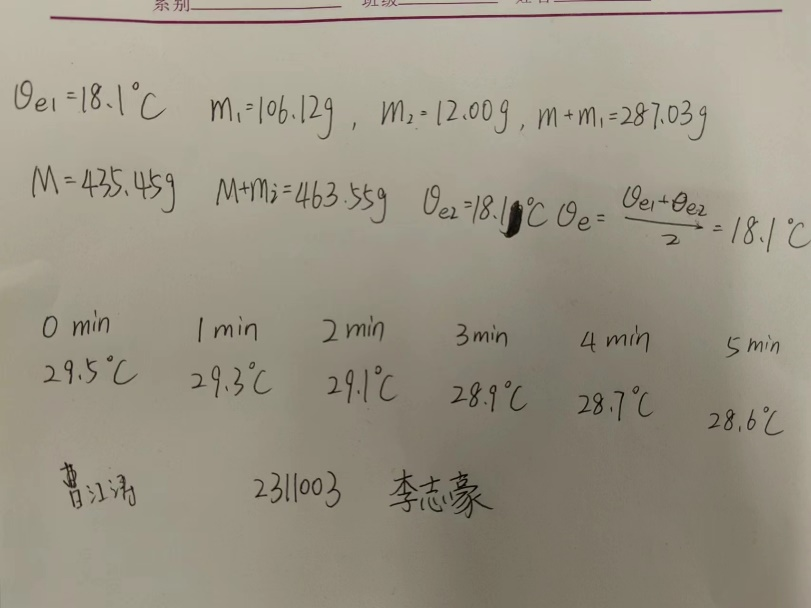 系别 班级 姓名
θe1=18.1°C m1=106.12g, m2=12.00g, m+m1=287.03g
M=435.45g M+mi=463.55g θe2=18.1°C θe=(θe1+θe2)/2=18.1°C
0 min 1 min 2 min 3 min 4 min 5 min
29.5°C 29.3°C 29.1°C 28.9°C 28.7°C 28.6°C
曹江涛 2311003 李志豪